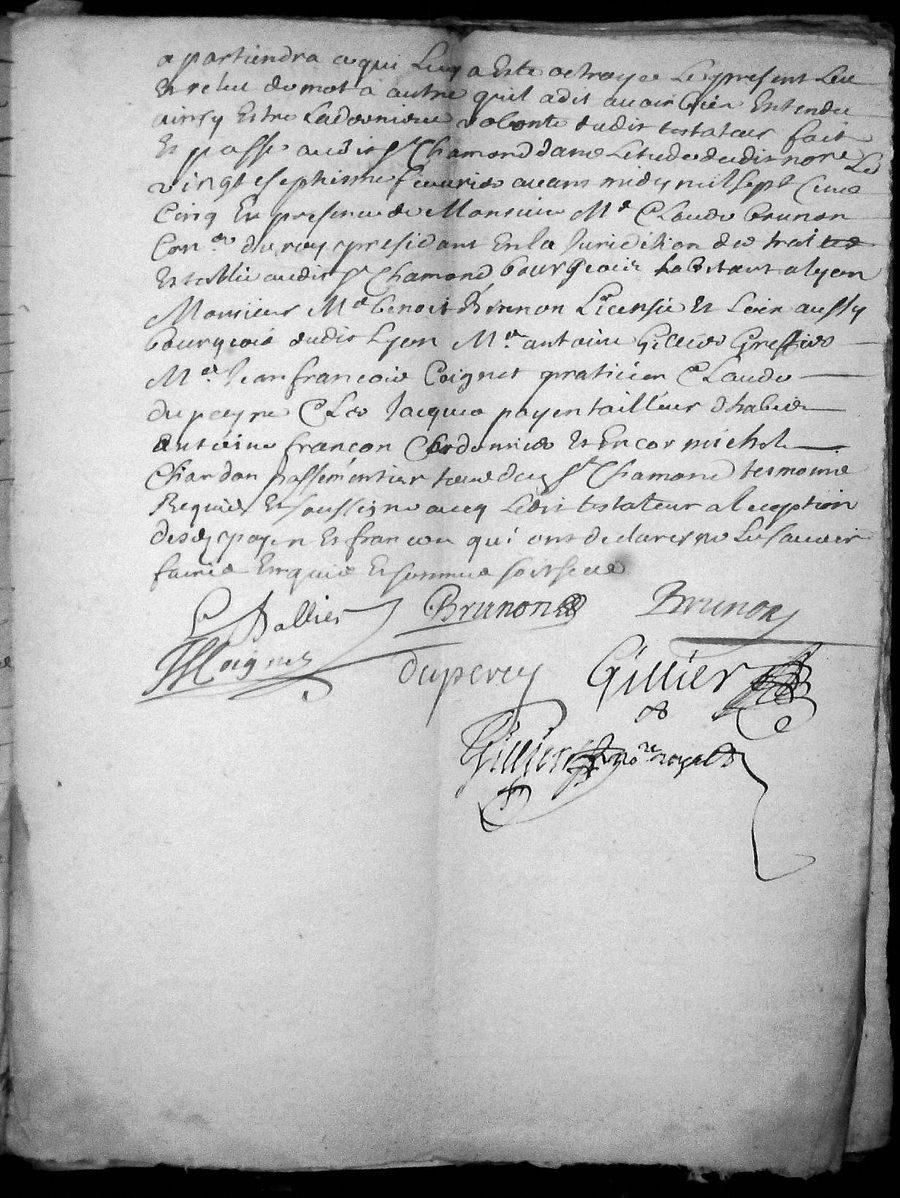 apartiendra ce qui luy a este octroyee Le present leu
Et releu de mot a autre quil a dit avoir bien Entendu
ainsy Estre La derniere volonte dudit testateur fait
Et passe audit St Chamond dans Letude dudit nore Le
vingt septiesme feuvrier avant midy mil sept Cens
Cinq En presence de Monsieur Me Claude brunon
Conr du roy president En la Juridition des traites
Establie audit St Chamond bourgeois habitant a lyon
Monsieur Me benoit Brunon Licensie Es loix aussy
bourgeois dudit Lyon Me antoine Gillier Greffier
Me Jean francois Coignet praticien Claude
duperey Clerc Jacques payen tailleur dhabis
Antoine françon Cordonnier Et Encor michel
Chardon passementier tous dud St Chamond tesmoins
Requis Et soussignes avec Ledit testateur a lexeption
desd payen Et françon qui ont declare ne le scavoir
faire Enquis Et sommes
Brunon Brunon
JF Coignet duperey Gillier
Gillier nore royal